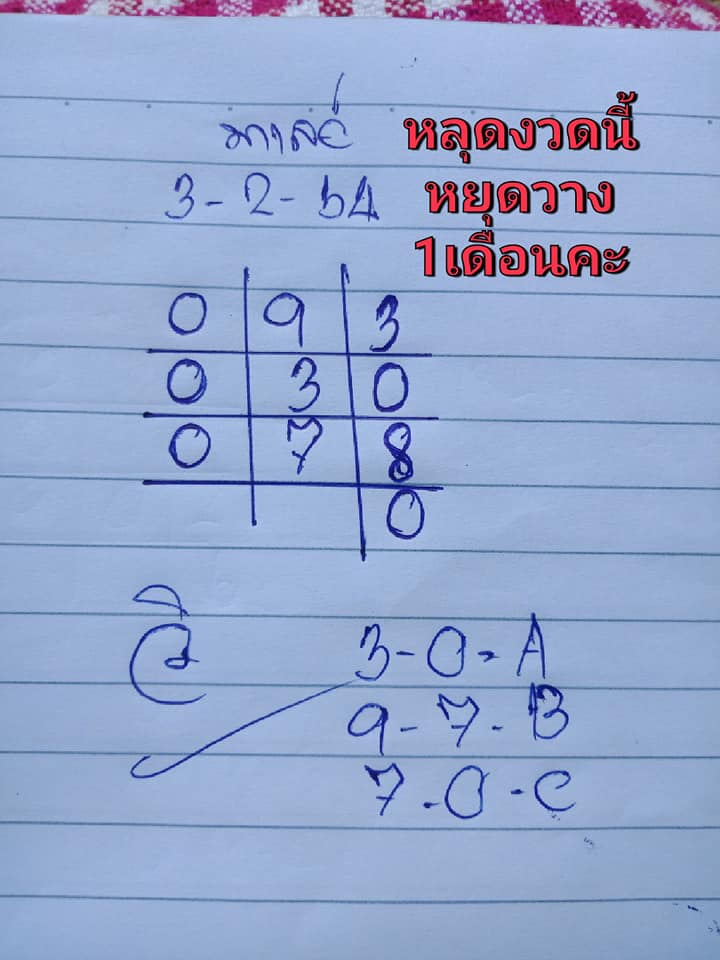 มาเลย์
3-2-64
หลุดงวดนี้
หยุดวาง
1เดือนคะ
0 9 3
0 3 0
0 7 8
0
3-0-A
9-7-B
7-0-C